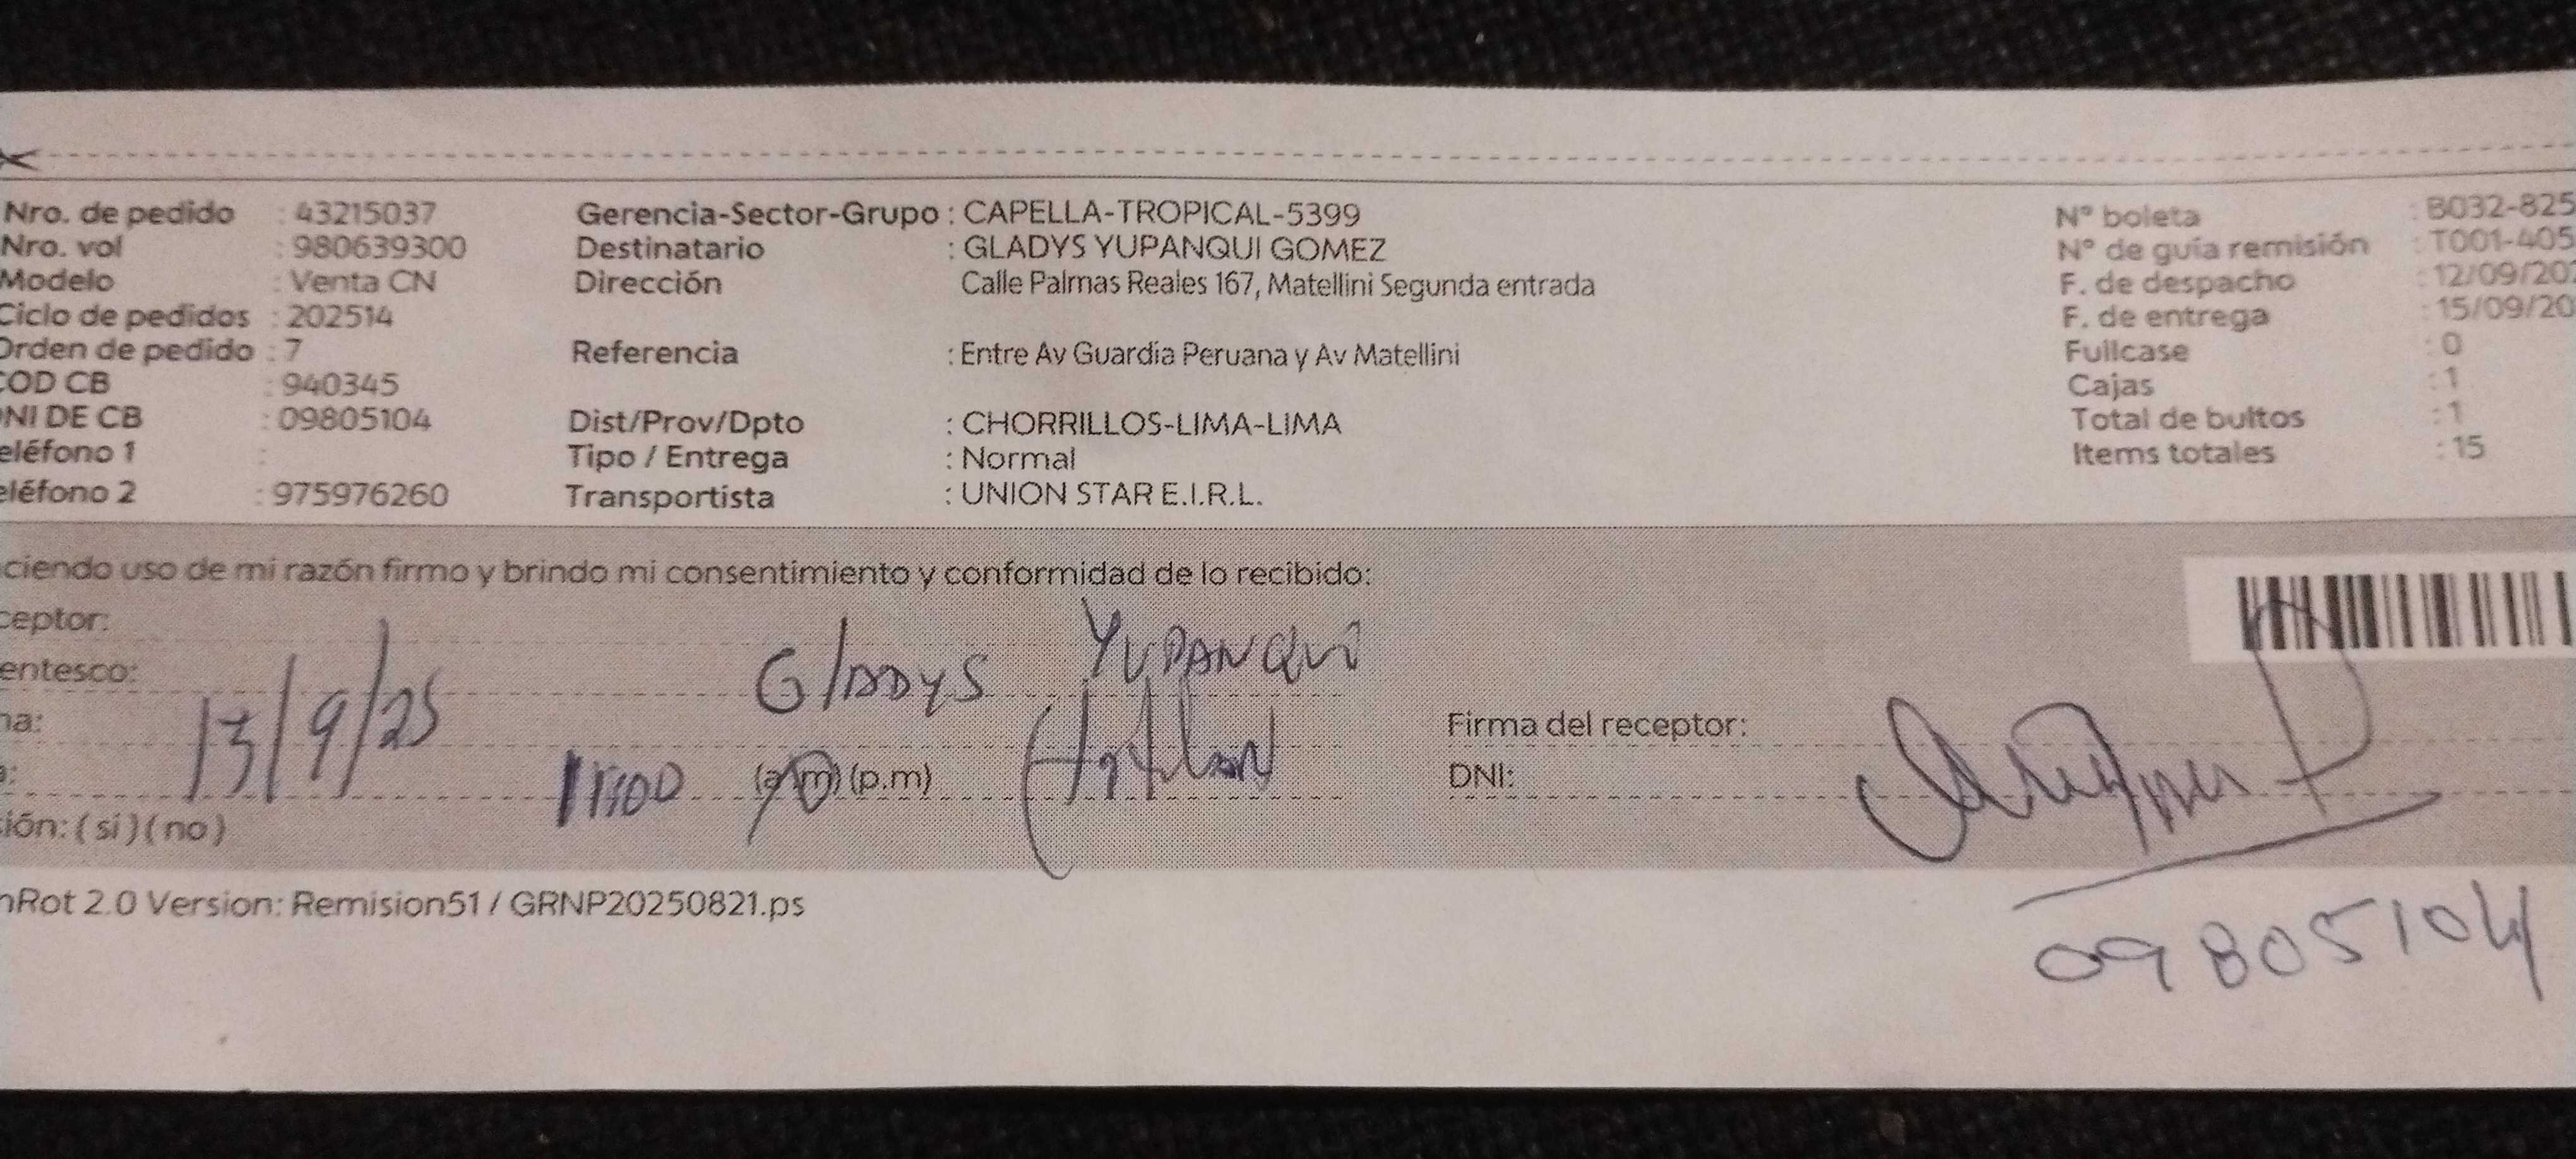 Nro. de pedido : 43215037 Gerencia-Sector-Grupo : CAPELLA-TROPICAL-5399 N° boleta : B032-825
Nro. vol : 980639300 Destinatario : GLADYS YUPANQUI GOMEZ N° de guía remisión : T001-405
Modelo : Venta CN Dirección Calle Palmas Reales 167, Matellini Segunda entrada F. de despacho : 12/09/202
Ciclo de pedidos : 202514 F. de entrega : 15/09/20
Orden de pedido : 7 Referencia : Entre Av Guardia Peruana y Av Matellini Fullcase : 0
COD CB : 940345 Cajas : 1
NI DE CB : 09805104 Dist/Prov/Dpto : CHORRILLOS-LIMA-LIMA Total de bultos : 1
eléfono 1 : Tipo / Entrega : Normal Items totales : 15
eléfono 2 : 975976260 Transportista : UNION STAR E.I.R.L.
ciendo uso de mi razón firmo y brindo mi consentimiento y conformidad de lo recibido:
ceptor:
entesco: Gladys YUPANQUI
na: 13/9/25 Firma del receptor:
a: (a.m) (p.m) (Titular) DNI:
sión: (si) (no)
09805104
nRot 2.0 Version: Remision51 / GRNP20250821.ps